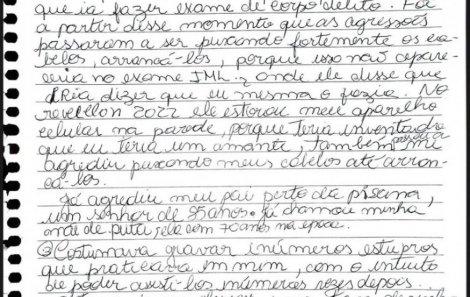 que ia fazer exame de corpo delito. Foi
a partir desse momento que as agressões
passaram a ser puxando fortemente os ca-
belos, arrancá-los, porque isso não aparece-
ceria no exame IML., onde ele disse que
iria dizer que eu mesma o fazia. No
reveillon 2022 ele estorou meu aparelho
celular na parede, porque teria inventado
que eu teria um amante, também passou a mi
agrediu puxando meus cabelos até arran-
cá-los.
Já agrediu meu pai perto da piscina,
um senhor de 85 anos. Já chamou minha
mãe de puta, ela com 70 anos na época.
Costumava gravar inúmeros estupros
que praticava em mim, com o intuito
de poder assisti-los inúmeras vezes depois...